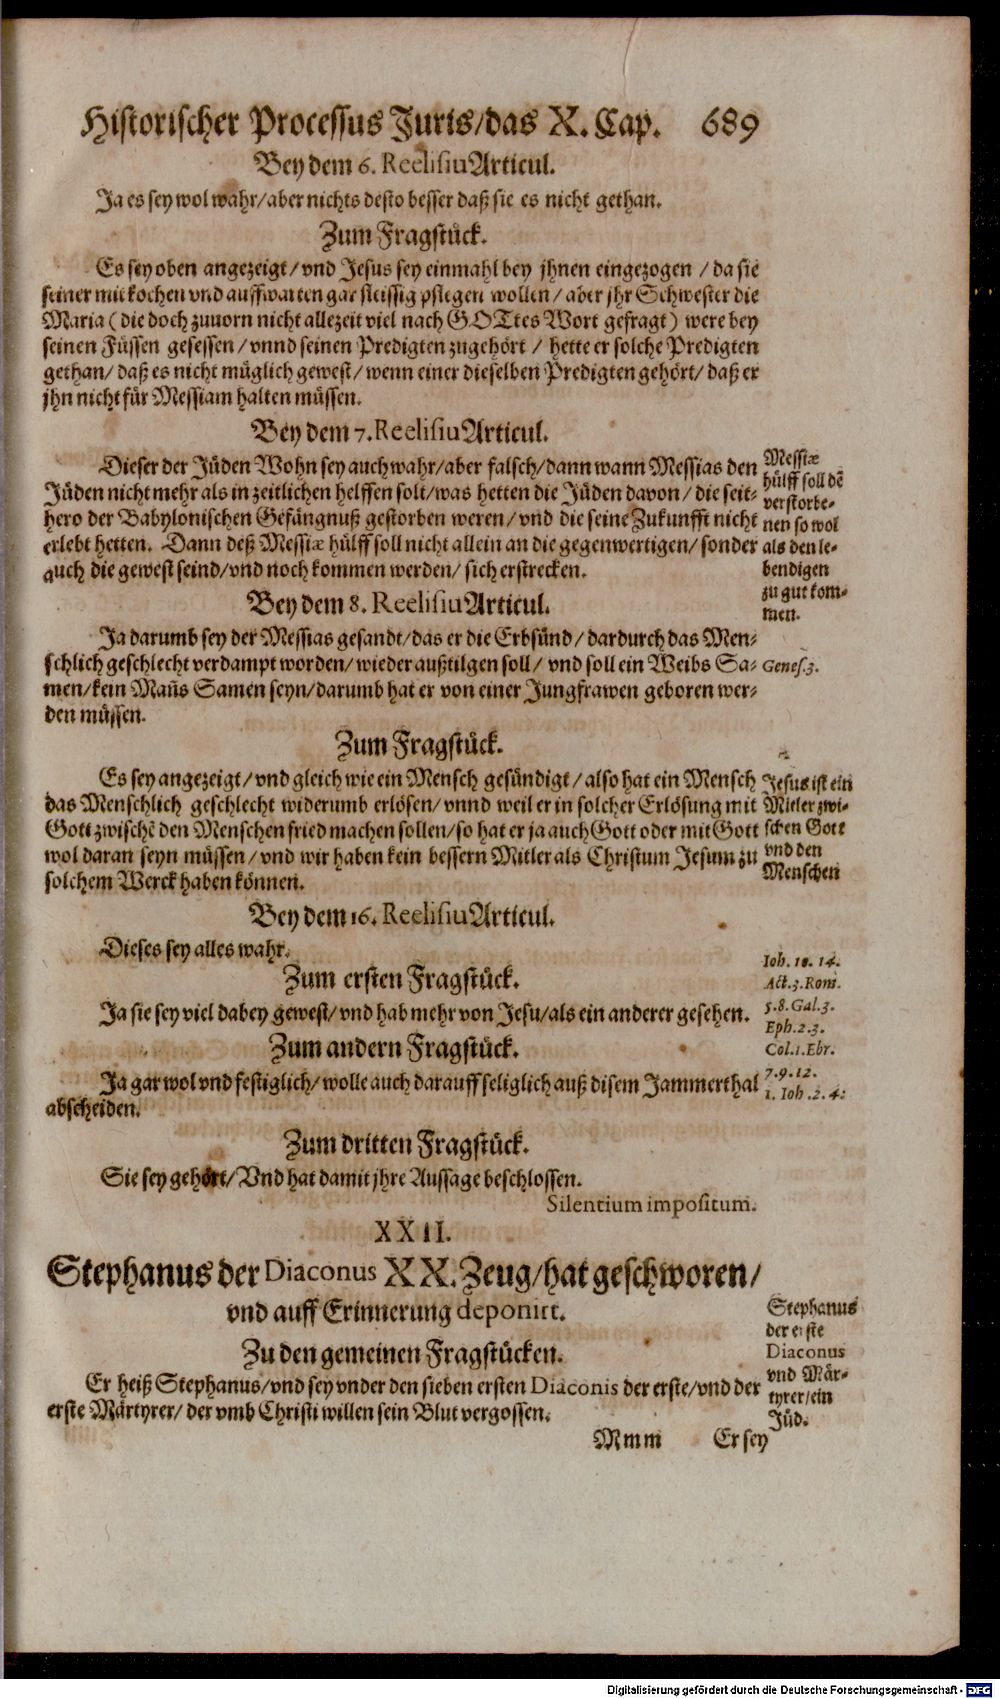 Historischer Processus Juris/das X. Cap. 689
Bey dem 6. Reelisiu Articul.
Ja es sey wol wahr/aber nichts desto besser daß sie es nicht gethan.
Zum Fragstück.
Es sey oben angezeigt/vnd Jesus sey einmahl bey jhnen eingezogen/da sie
seiner mit kochen vnd auffwarten gar fleissig pflegen wollen/aber jhr Schwester die
Maria (die doch zuuorn nicht allezeit viel nach GOTtes Wort gefragt) were bey
seinen Füssen gesessen/vnnd seinen Predigten zugehört/hette er solche Predigten
gethan/daß es nicht müglich gewest/wenn einer dieselben Predigten gehört/daß er
jhn nicht für Messiam halten müssen.
Bey dem 7. Reelisiu Articul.
Dieser der Jüden Wohn sey auch wahr/aber falsch/dann wann Messias den
Jüden nicht mehr als in zeitlichen helffen solt/was hetten die Jüden davon/die seit-
hero der Babylonischen Gefängnuß gestorben weren/vnd die seine Zukunfft nicht
erlebt hetten. Dann deß Messiæ hülff soll nicht allein an die gegenwertigen/sonder
auch die gewest seind/vnd noch kommen werden/sich erstrecken.
Messiæ
hülff soll dē
verstorbe-
nen so wol
als den le-
bendigen
zu gut kom-
men.
Bey dem 8. Reelisiu Articul.
Ja darumb sey der Messias gesandt/das er die Erbsünd/dardurch das Men-
schlich geschlecht verdampt worden/wieder außtilgen soll/vnd soll ein Weibs Sa-
men/kein Mañs Samen seyn/darumb hat er von einer Jungfrawen geboren wer-
den müssen.
Genes. 3.
Zum Fragstück.
Es sey angezeigt/vnd gleich wie ein Mensch gesündigt/also hat ein Mensch
das Menschlich geschlecht widerumb erlösen/vnnd weil er in solcher Erlösung mit
Gott zwischē den Menschen fried machen sollen/so hat er ja auch Gott oder mit Gott
wol daran seyn müssen/vnd wir haben kein bessern Mitler als Christum Jesum zu
solchem Werck haben können.
Jesus ist ein
Mitler zwi-
schen Gott
vnd den
Menschen
Bey dem 16. Reelisiu Articul.
Dieses sey alles wahr.
Zum ersten Fragstück.
Ja sie sey viel dabey gewest/vnd hab mehr von Jesu/als ein anderer gesehen.
Zum andern Fragstück.
Ja gar wol vnd festiglich/wolle auch darauff seliglich auß disem Jammerthal
abscheiden.
Ioh. 10. 14.
Act. 3. Rom.
5. 8. Gal. 3.
Eph. 2. 3.
Col. 1. Ebr.
7. 9. 12.
1. Ioh. 2. 4:
Zum dritten Fragstück.
Sie sey gehört/Vnd hat damit jhre Aussage beschlossen.
Silentium impositum.
XXII.
Stephanus der Diaconus XX. Zeug/hat geschworen/
vnd auff Erinnerung deponirt.
Zu den gemeinen Fragstücken.
Er heiß Stephanus/vnd sey vnder den sieben ersten Diaconis der erste/vnd der
erste Märtyrer/der vmb Christi willen sein Blut vergossen.
Stephanus
der erste
Diaconus
vnd Mär-
tyrer/ein
Jüd.
Mmm Er sey
Digitalisierung gefördert durch die Deutsche Forschungsgemeinschaft - DFG